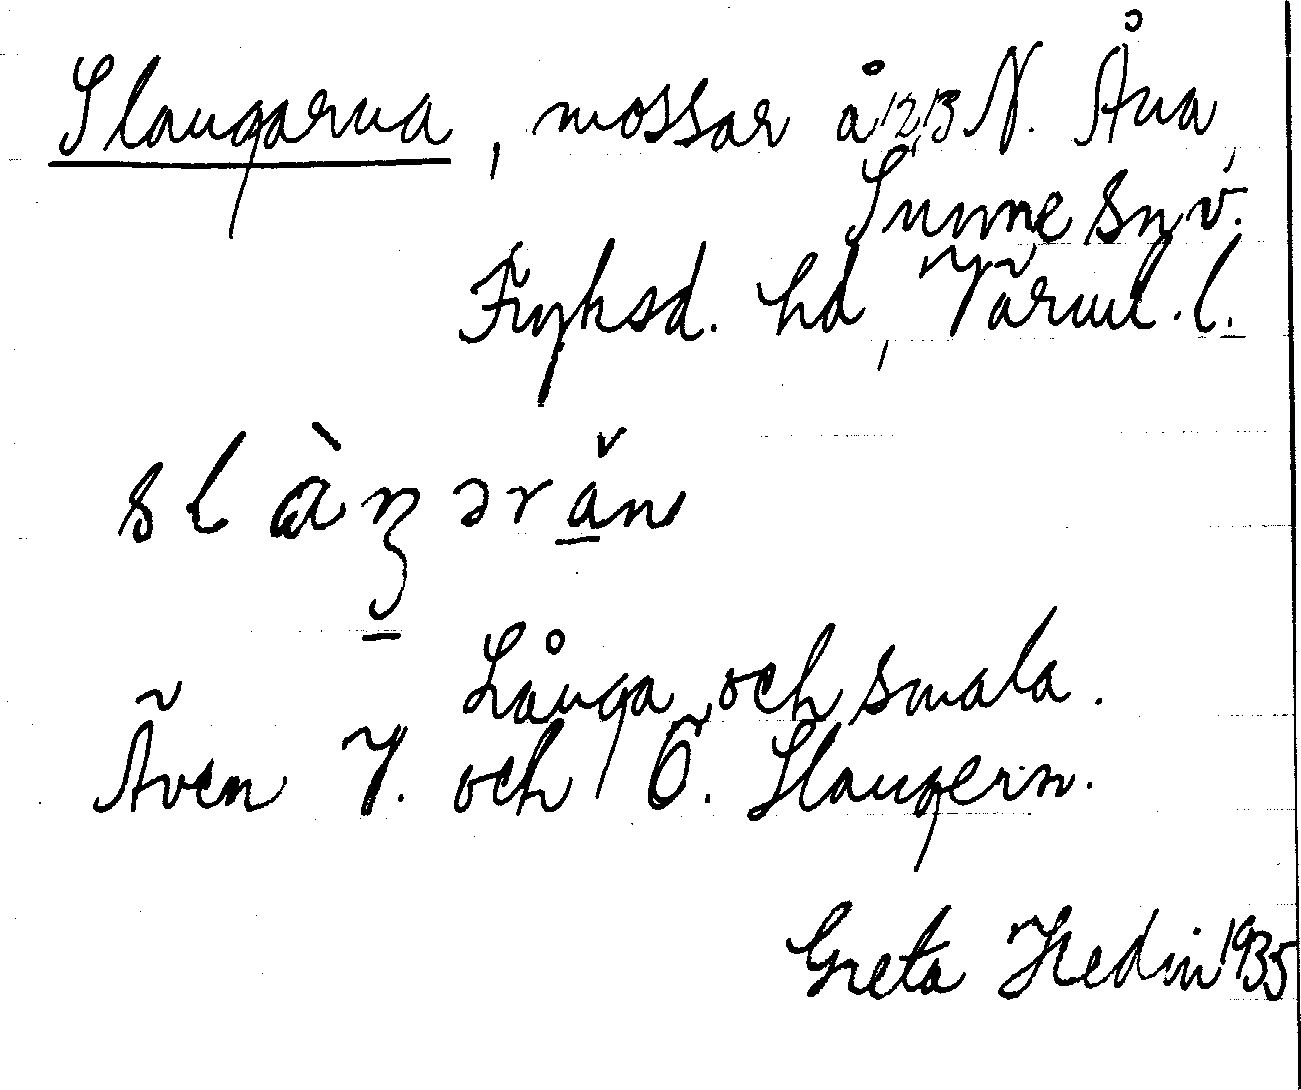 Slangarna, mossar å 1213 N. Åna,
Sunne sn v.
Fryksd. hd, Värml. l.
slàŋərǎn
Långa och smala.
Även V. och Ö. Slangern.
Greta Hedin 1935